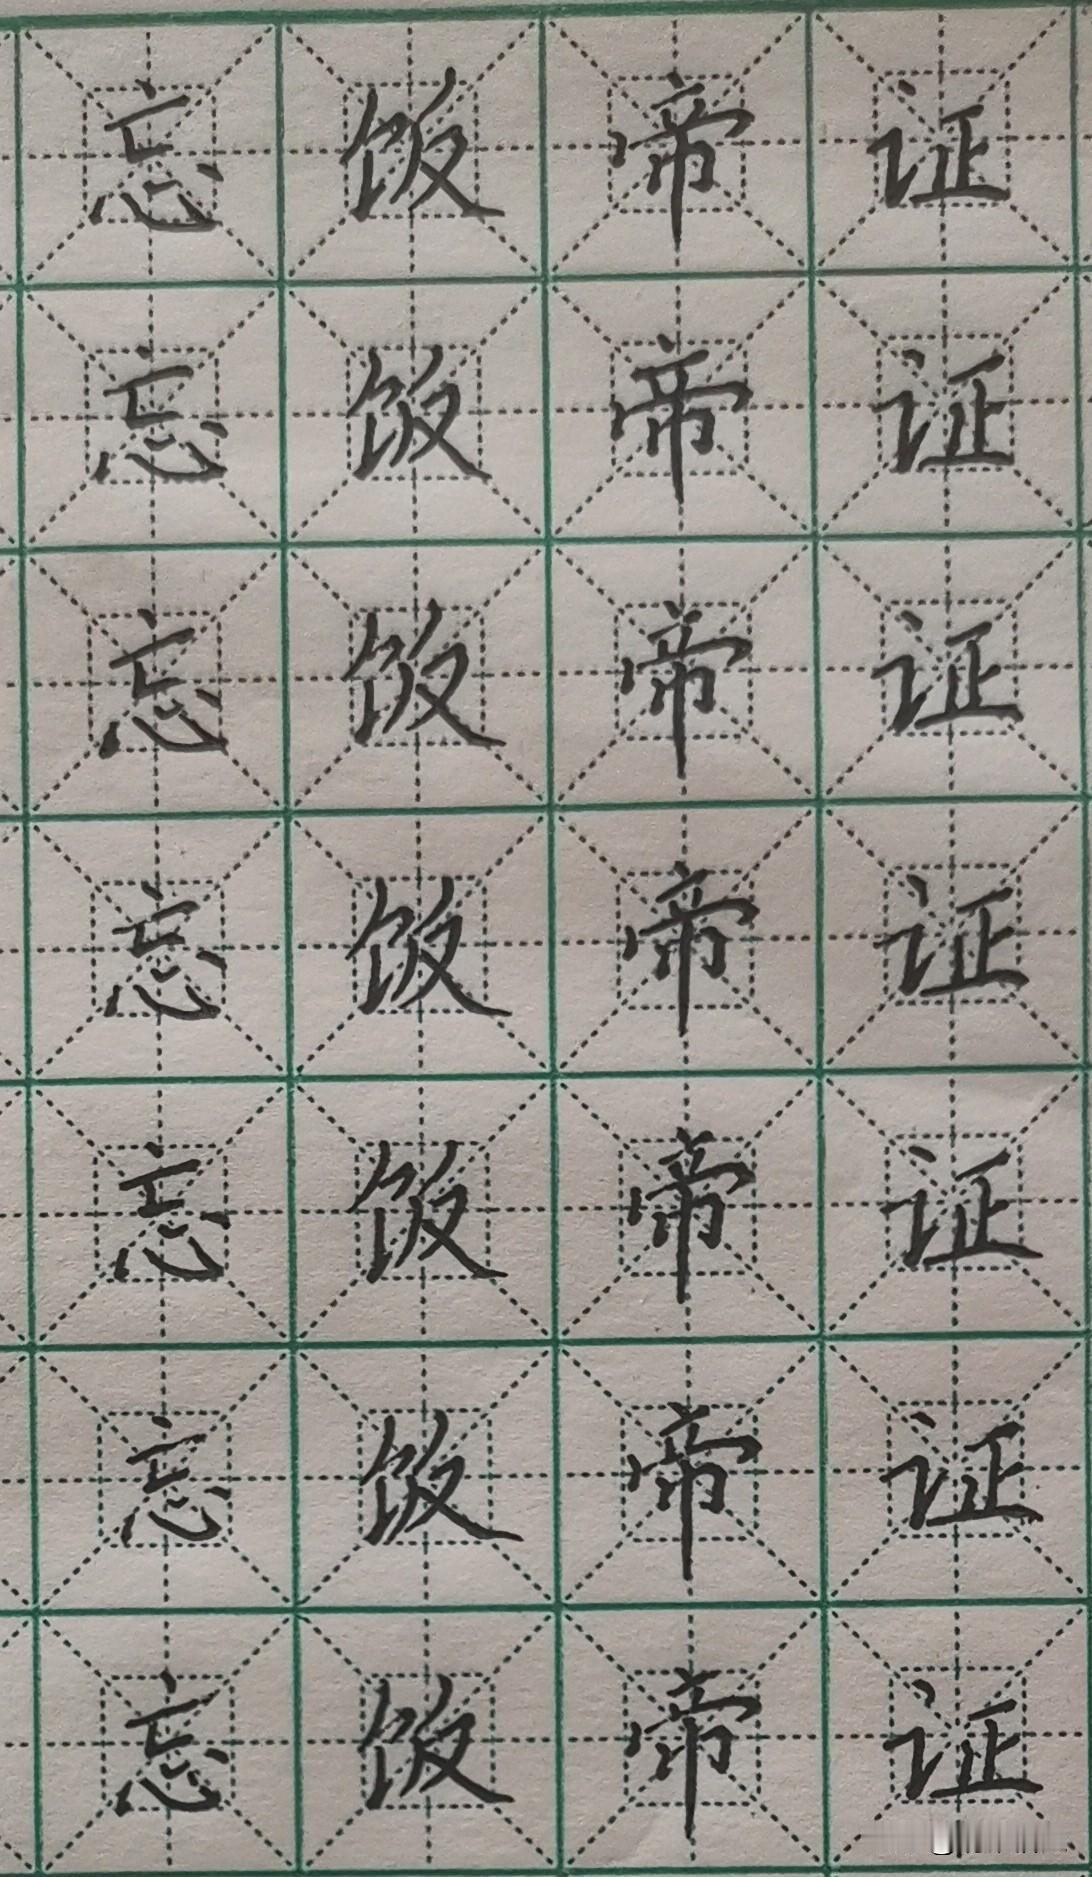 忘饭帝证
忘饭帝证
忘饭帝证
忘饭帝证
忘饭帝证
忘饭帝证
忘饭帝证